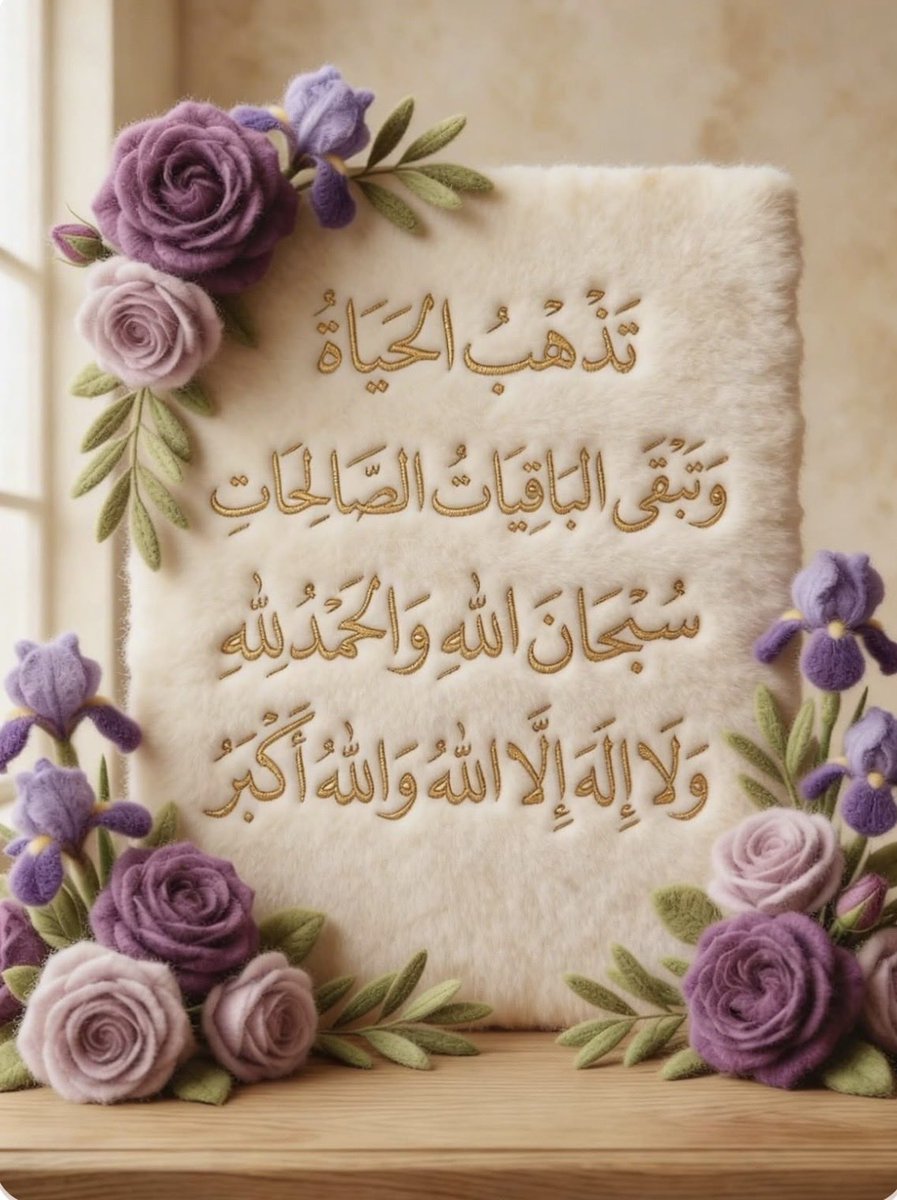 تَذْهَبُ الحَيَاةُ
وَتَبْقَى البَاقِيَاتُ الصَّالِحَاتِ
سُبْحَانَ اللهِ وَالحَمْدُ لِلهِ
وَلَا إِلَهَ إِلَّا اللهُ وَاللهُ أَكْبَرُ